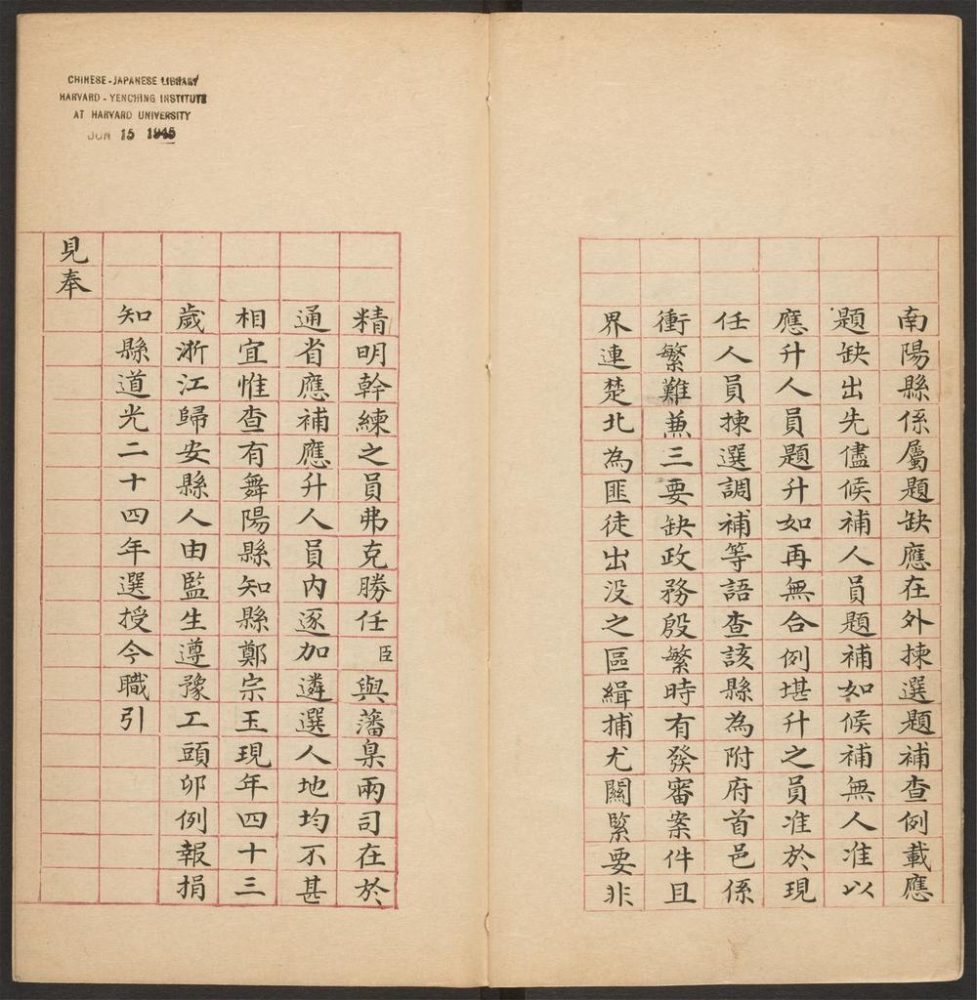 CHINESE-JAPANESE LIBRARY
HARVARD-YENCHING INSTITUTE
AT HARVARD UNIVERSITY
JUN 15 1945
南陽縣係屬題缺應在外揀選題補查例載應
題缺出先儘候補人員題補如候補無人准以
應升人員題升如再無合例堪升之員准於現
任人員揀選調補等語查該縣為附府首邑係
衝繁難兼三要缺政務殷繁時有發審案件且
界連楚北為匪徒出没之區緝捕尤關緊要非
精明幹練之員弗克勝任臣與藩臬兩司在於
通省應補應升人員內逐加遴選人地均不甚
相宜惟查有舞陽縣知縣鄭宗玉現年四十三
歲浙江歸安縣人由監生遵豫工頭卯例報捐
知縣道光二十四年選授今職引
見奉